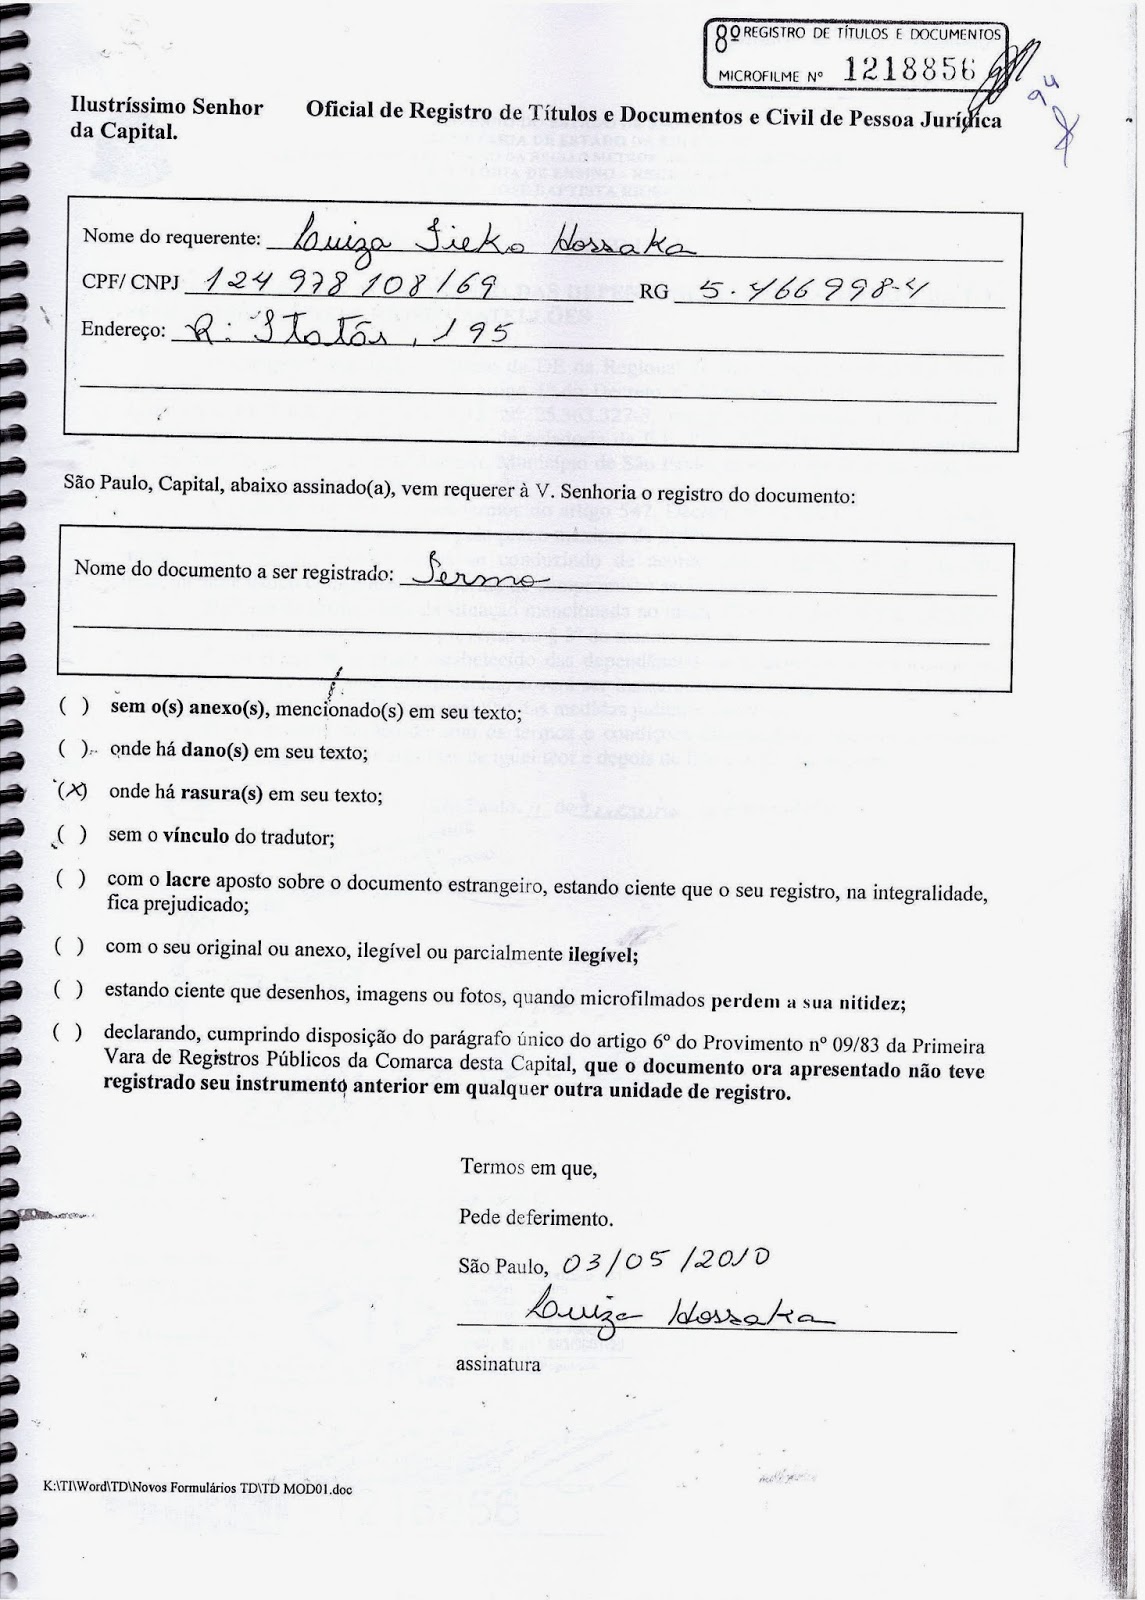 8º REGISTRO DE TÍTULOS E DOCUMENTOS
MICROFILME Nº 1218856
94
Ilustríssimo Senhor Oficial de Registro de Títulos e Documentos e Civil de Pessoa Jurídica
da Capital.
Nome do requerente: Luiza Sieko Hossaka
CPF/ CNPJ 124 978 108/69 RG 5.466998-4
Endereço: R: Itatás, 195
São Paulo, Capital, abaixo assinado(a), vem requerer à V. Senhoria o registro do documento:
Nome do documento a ser registrado: Termo
( ) sem o(s) anexo(s), mencionado(s) em seu texto;
( ) onde há dano(s) em seu texto;
(X) onde há rasura(s) em seu texto;
( ) sem o vínculo do tradutor;
( ) com o lacre aposto sobre o documento estrangeiro, estando ciente que o seu registro, na integralidade,
fica prejudicado;
( ) com o seu original ou anexo, ilegível ou parcialmente ilegível;
( ) estando ciente que desenhos, imagens ou fotos, quando microfilmados perdem a sua nitidez;
( ) declarando, cumprindo disposição do parágrafo único do artigo 6º do Provimento nº 09/83 da Primeira
Vara de Registros Públicos da Comarca desta Capital, que o documento ora apresentado não teve
registrado seu instrumento anterior em qualquer outra unidade de registro.
Termos em que,
Pede deferimento.
São Paulo, 03/05/2010
Luiza Hossaka
assinatura
K:\TI\Word\TD\Novos Formulários TD\TD MOD01.doc